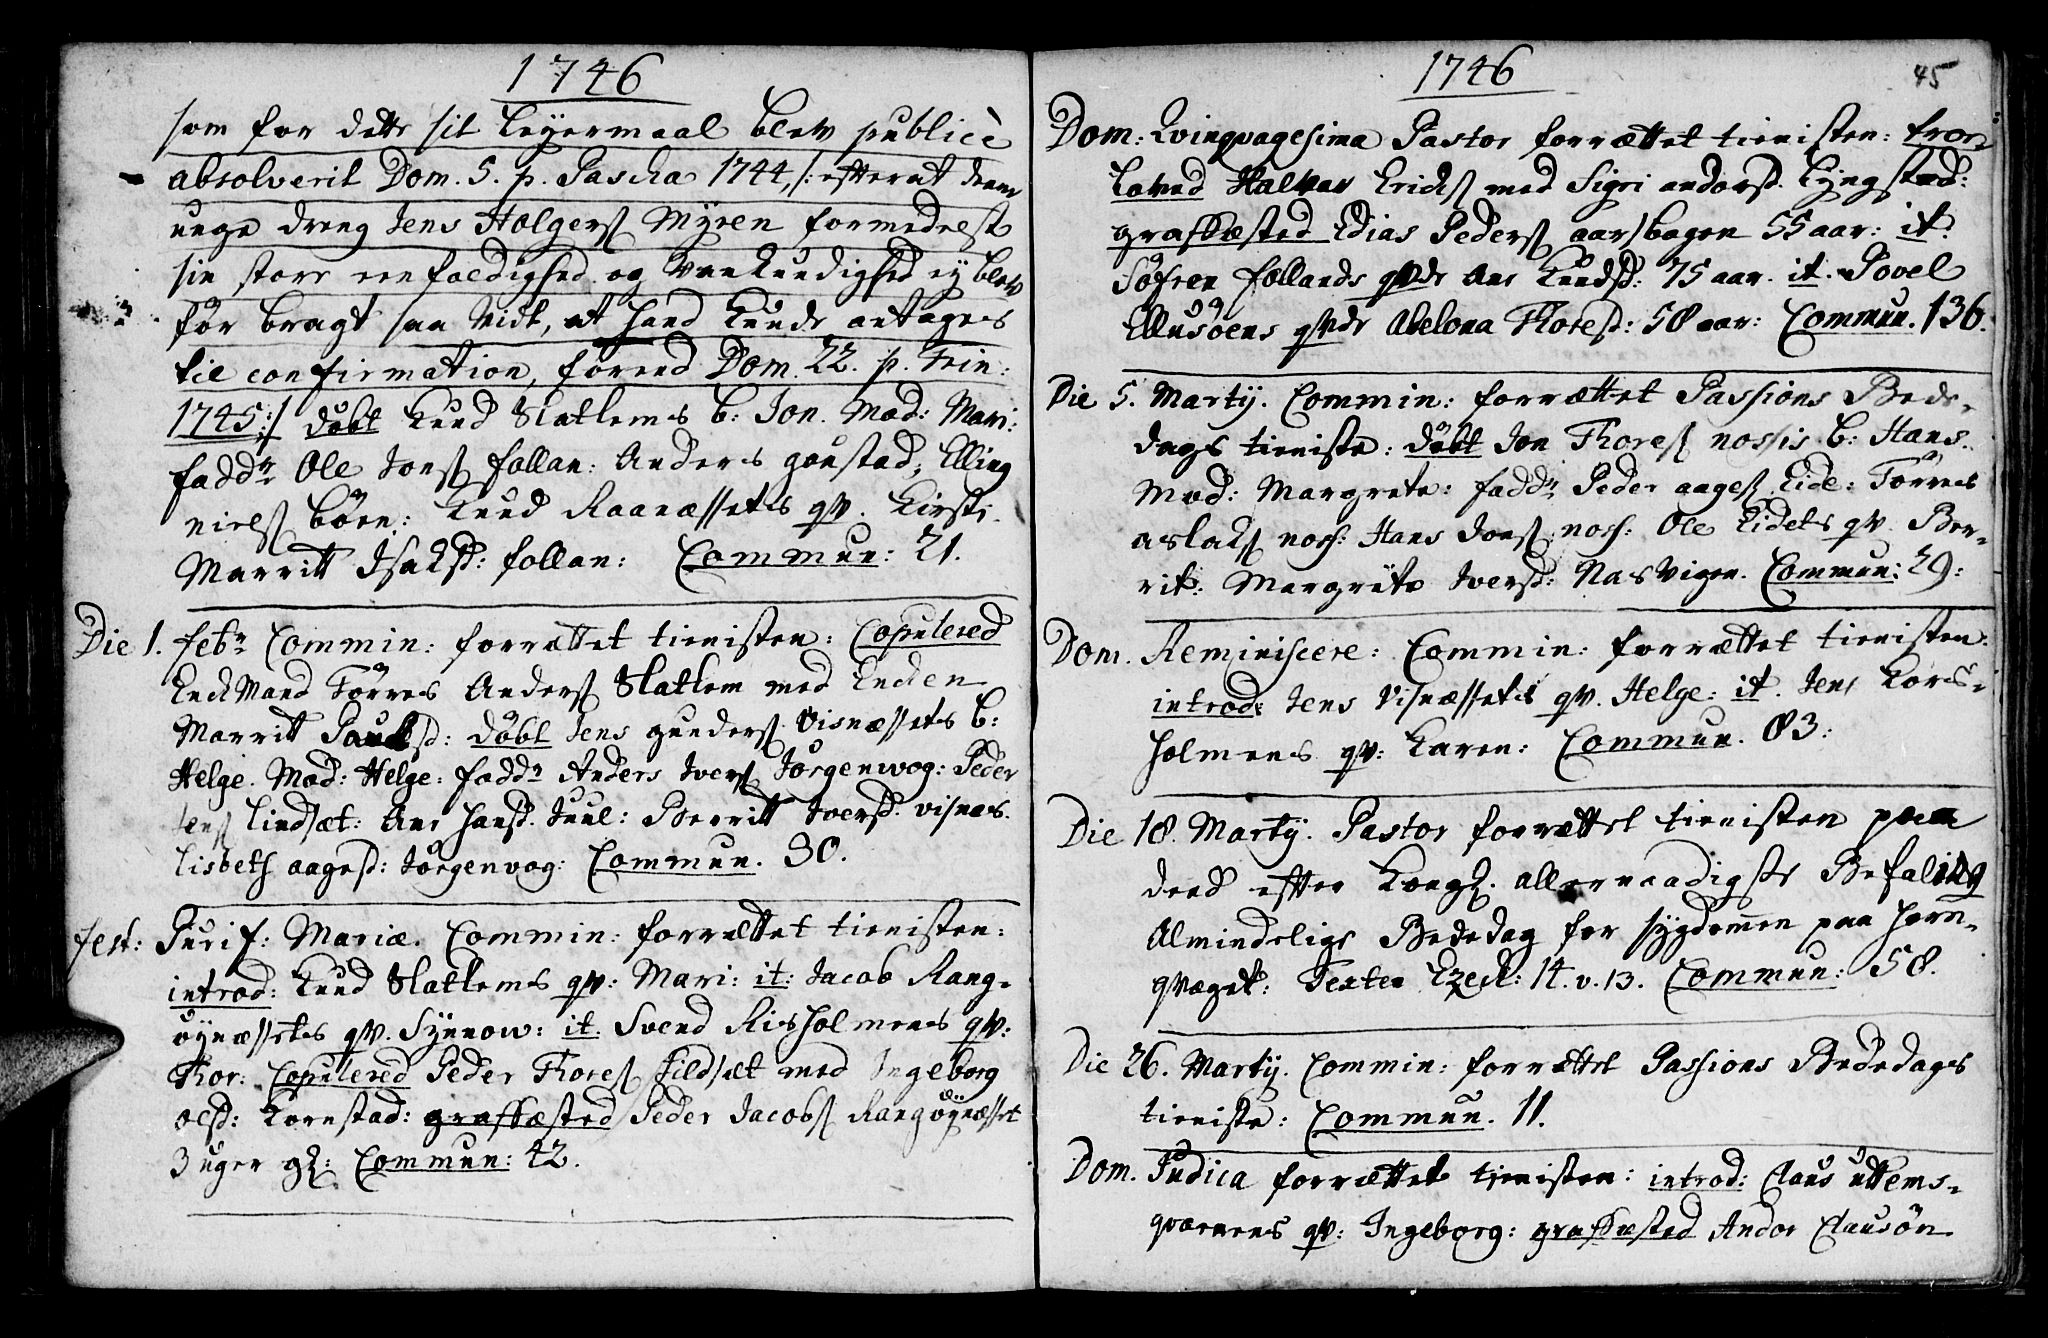 1746
som for dette sit leyermaal blev publicè
absolverit Dom. 5. p. Pascha 1744, /: efterat denne
unge dreng Jens Holgers Myren formedelst
sin store eenfoldighed og Vankundighed ey blev
før bragt saa vidt, at hand kunde antages
til confirmation, førend Dom. 22. p. Trin:
1745 :/ døbt Knud Slatlems b: Jon. Mod: Mari:
fadd: Ole Jons follan: Anders goustad, Elling
niels Böen: Knud Raanæssets qv. Kirsti.
Marritt Isaksd: follan: Commun: 21.
Die 1. febr Commin: forrættet tienisten: Copulered
Enckmand Törres Anders Slatlem med Encken
Marrit Paulsd: döbt Jens gunders Visnæssets b:
Helge. Mod: Helge: fadd Anders Ivers Jörgenvog: Peder
Jens Lindsæt: Ane Hansd. Juul: Berritt Iversd. visnæs.
Lisbeth aagesd: Jörgenvog: Commun. 30.
fest: Purif: Mariæ. Commin: forrættet tienisten:
introd: Knud Slatlems qv: Mari: it: Jacob Rang-
öynæssets qv. Synnow: it. Svend Risholmens qv:
Thor: Copulered Peder Thores Sildsæt med Ingeborg
olsd: Kornstad: grafkæsted Peder Jacobs Rangöynæsset
3 uger gl: Commun: 42.
1746
45
Dom: Qvinqvagesima Pastor forrættet tienisten: troe-
loved Halvar Ericks med Sigri andorsd. Lyngstad:
grafkæsted Elias Peders aarsbogen 55 aar: it:
Söfren follands qvde Ane Knudsd: 75 aar. it. Povel
Ellusöens qvde Abelona Thoresd: 58 aar: Commun. 136.
Die 5. Martij. Commin: forrættet Passions Bede-
dags tieniste: döbt Jon Thores nossis b: Hans.
Mod: Margrete: fadd Peder aages Eide: Törres
aslaks noss: Hans Jons noss: Ole Eidets qv. Ber-
rit: Margrete Iversd: Nasvigen. Commun: 29:
Dom. Reminiscere: Commin: forrættet tienisten:
introd: Jens Visnæssets qv. Helge: it. Jens Kors-
holmens qv: Karen: Commun. 83:
Die 18. Martij. Pastor forrættet tienisten paa
dend efter Kongl. allernaadigste Befaling
Almindelige Bededag for sygdommen paa horn-
qvæget: Texten Ezech: 14. v. 13. Commun: 58.
Die 26. Martij. Commin: forrættet Passions Bededags
tieniste: Commun. 11.
Dom. Judica forrættet tienisten: introd: Claus uttems-
qværnens qv: Ingeborg: grafkæsted Andor Clausön